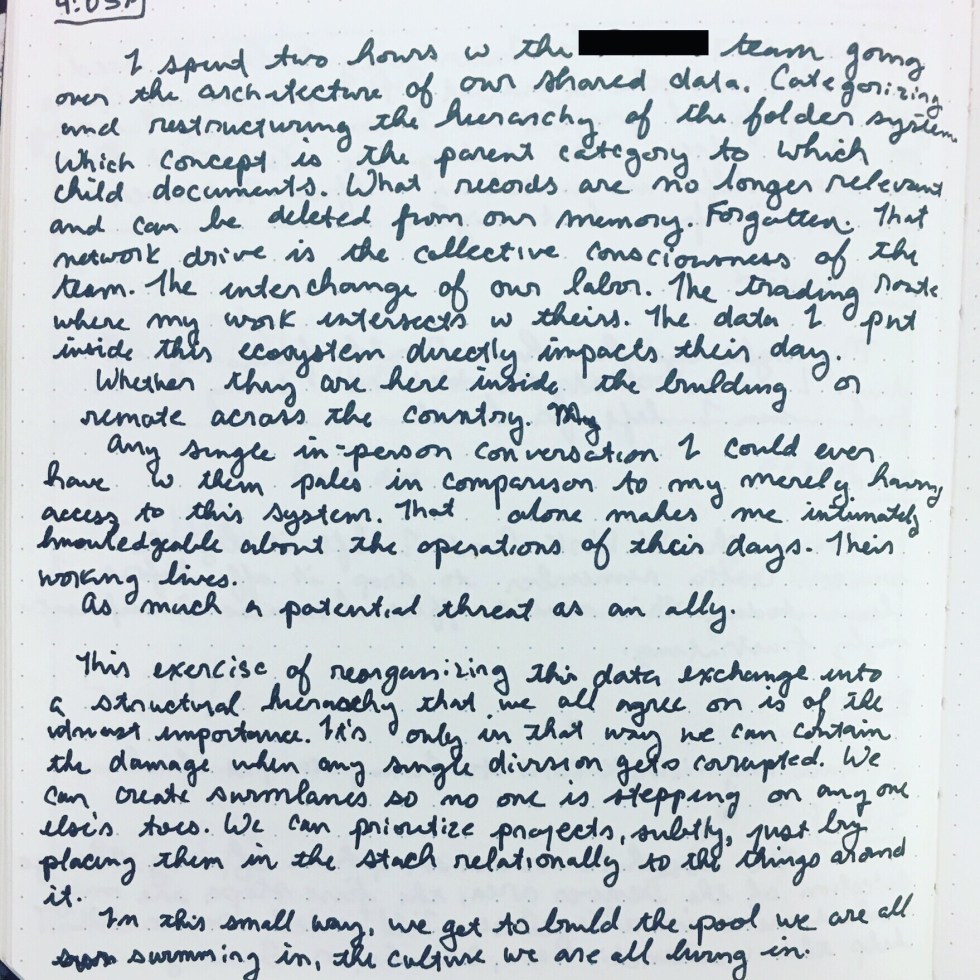 4:03P
I spend two hours w the team going
over the architecture of our shared data. Categorizing
and restructuring the hierarchy of the folder system.
Which concept is the parent category to which
child documents. What records are no longer relevant
and can be deleted from our memory. Forgotten. That
network drive is the collective consciousness of the
team. The interchange of our labor. The trading route
where my work intersects w theirs. The data I put
inside this ecosystem directly impacts their day.
Whether they are here inside the building or
remote across the country. My
Any single in-person conversation I could ever
have w them pales in comparison to my merely having
access to this system. That alone makes me intimately
knowledgeable about the operations of their days. Their
working lives.
As much a potential threat as an ally.
This exercise of reorganizing this data exchange into
a structural hierarchy that we all agree on is of the
utmost importance. It's only in that way we can contain
the damage when any single division gets corrupted. We
can create swimlanes so no one is stepping on any one
else's toes. We can prioritize projects, subtly, just by
placing them in the stack relationally to the things around
it.
In this small way, we get to build the pool we are all
swimming in, the culture we are all living in.